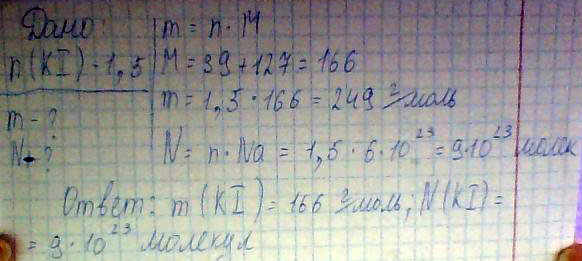 Дано:
n(KI) - 1,5
m - ?
N - ?
m = n · M
M = 39 + 127 = 166
m = 1,5 · 166 = 249 г/моль
N = n · Na = 1,5 · 6 · 10²³ = 9 · 10²³ молек
Ответ: m (KI) = 166 г/моль; N(KI) =
= 9 · 10²³ молекул